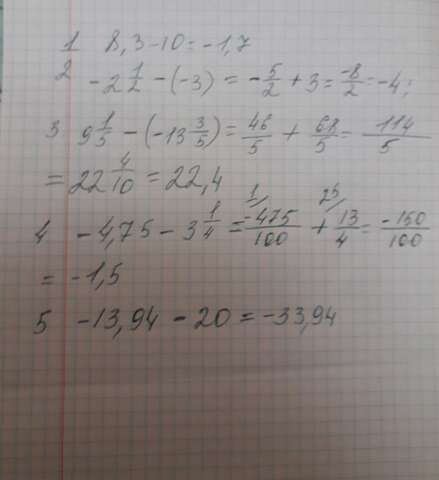 1 8,3-10=-1,7
2 -2 1/2 - (-3) = -5/2 + 3 = -8/2 = -4;
3 9 1/5 - (-13 3/5) = 46/5 + 68/5 = 114/5
= 22 4/10 = 22,4
4 -4,75 - 3 1/4 = -475/100 1/ + 13/4 25/ = -150/100
= -1,5
5 -13,94 - 20 = -33,94